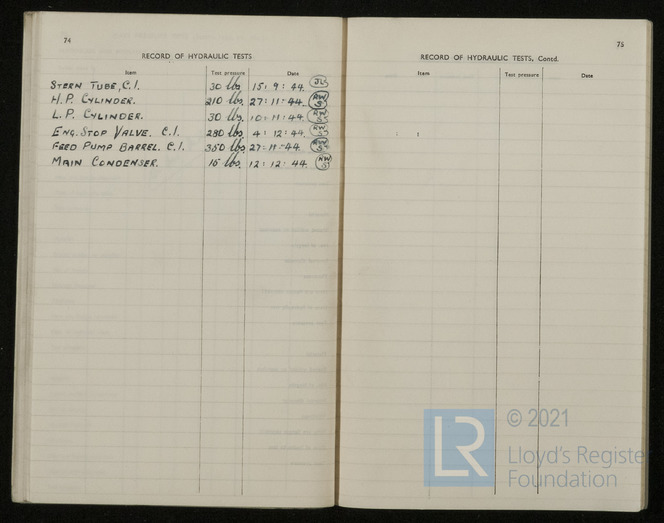 74
RECORD OF HYDRAULIC TESTS
Item Test pressure Date
STERN TUBE, C.I. 30 lbs 15:9:44. JLS
H.P. CYLINDER. 210 lbs. 27:11:44. RW S
L.P. CYLINDER. 30 lbs. 10:11:44. RW S
ENG. STOP VALVE. C.I. 280 lbs. 4:12:44. RW S
FEED PUMP BARREL. C.I. 350 lbs. 27:11:44. RW S
MAIN CONDENSER. 15 lbs. 12:12:44. RW S
75
RECORD OF HYDRAULIC TESTS. Contd.
Item Test pressure Date
LR
© 2021
Lloyd's Register
Foundation